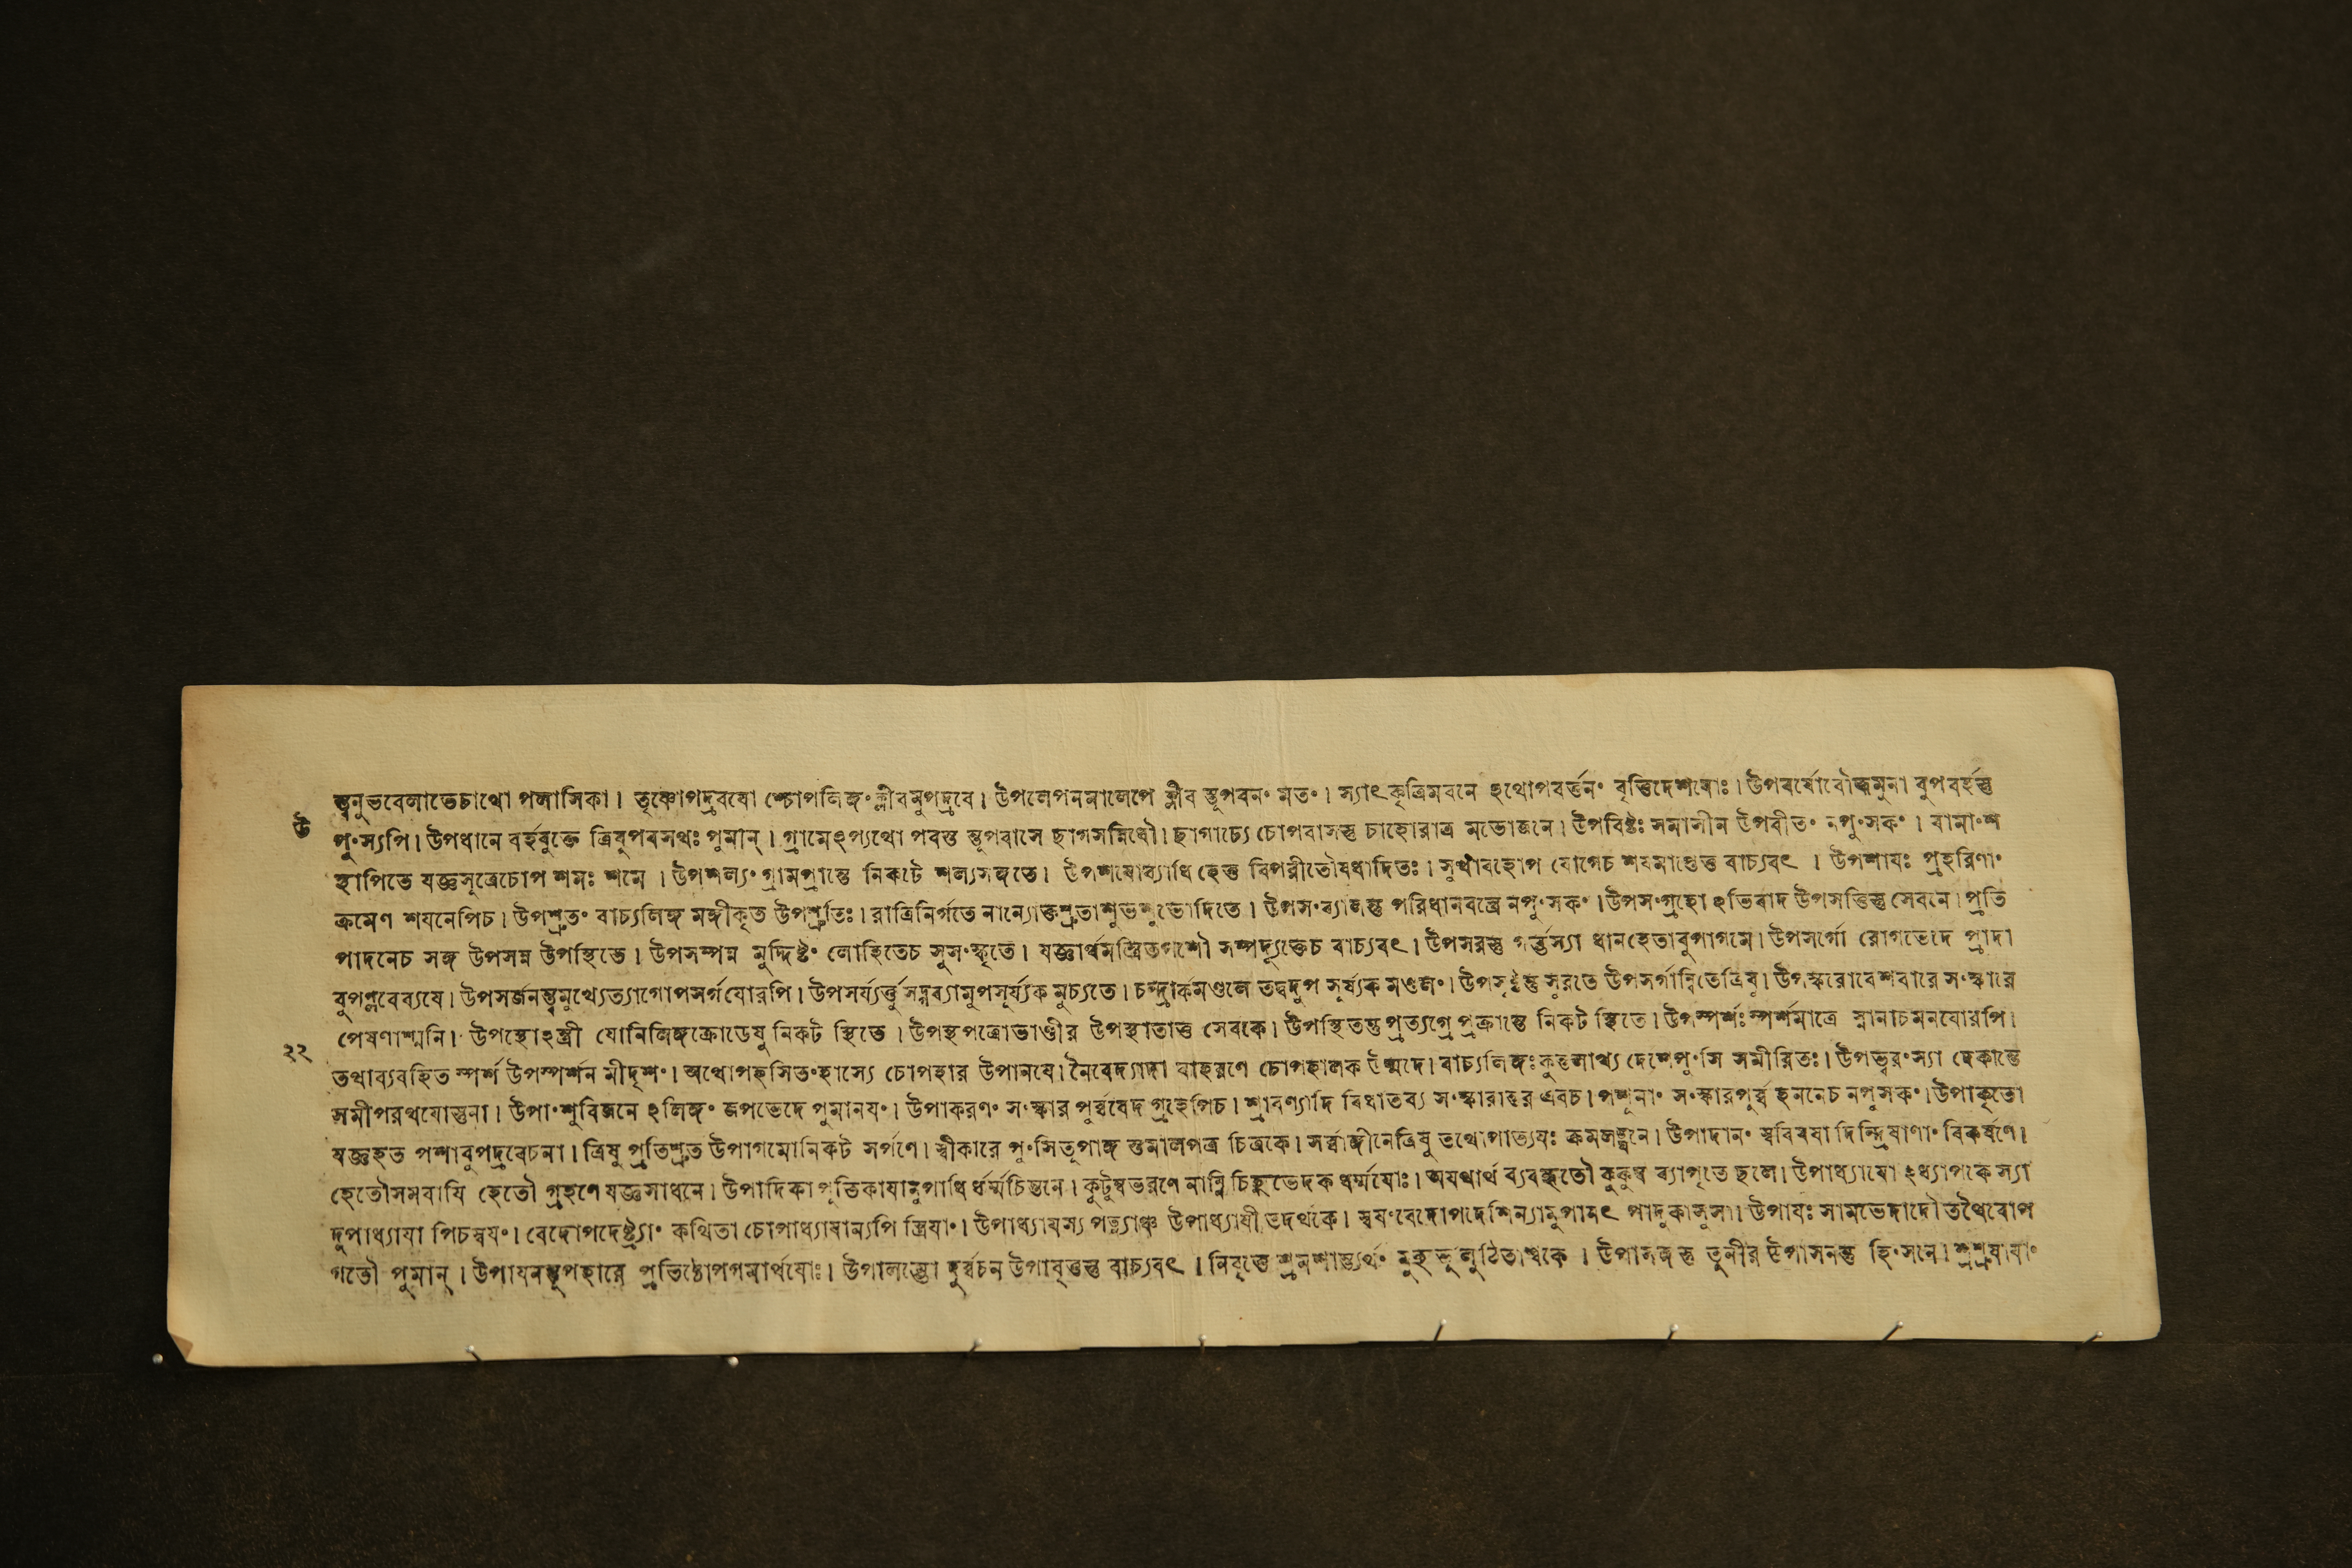 ন্ত্বনুভবেলাভেচাথো পলাসিকা। তৃষ্ণোপদ্রবযো শ্চোপলিঙ্গং ক্লীবমুপদ্রবে। উপলেপনমালেপে ক্লীব ন্তূপবনং মতং। স্যাৎ কৃত্রিমবনে ঽথোপবর্ত্তনং বৃত্তিদেশযোঃ।
উ
পুংস্যপি। উপধানে বর্হবুক্তে ত্রিষুপবসথঃ পুমান্। গ্রামেঽপ্যথো পবস্ত ন্তূপবাসে ছাগসন্নিধৌ। ছাগাচ্যে চোপবাসস্তু চাহোরাত্র মভোজনে। উপবিষ্টঃ সমাসীন উপবীতং নপুংসকং। বামাংশ
স্থাপিতে যজ্ঞসূত্রেচোপ শমঃ শমে। উপশল্যং গ্রামপ্রান্তে নিকটে শল্যসঙ্গতে। উপশযোব্যাধি হেতু বিপরীতৌষধাদিতঃ। সুখাবহোপ যোগেচ বাচ্যবৎ। উপশাযঃ প্রহরিণাং
ক্রমেণ শযনেপিচ। উপশ্রুতং বাচ্যলিঙ্গ মঙ্গীকৃত উপশ্রুতিঃ। রাত্রিনির্গতে নান্যোক্তশ্রুতাশুভশুভোদিতে। উপসংব্যানন্তু পরিধানবস্ত্রে নপুংসকং। উপসংগ্রহো ঽভিবাদ উপসত্তিস্তু সেবনে। প্রতি
পাদনেচ সঙ্গ উপসন্ন উপস্থিতে। উপসম্পন্ন মুদ্দিষ্টং লোহিতেচ সুসংস্কৃতে। যজ্ঞার্থমন্ত্রিতপশৌ সম্পদ্যুক্তেচ বাচ্যবৎ। উপসরস্তু গর্ভস্যা ধানহেতাবুপাগমে। উপসর্গো রোগভেদে প্রাদা
বুপপ্লবেব্যযে। উপসর্জনন্ত্বমুখ্যেত্যাগোপসর্গযোরপি। উপসূর্য্যক মুচ্যতে। চন্দ্রার্কমণ্ডলে তদ্বদুপ সূর্য্যক মণ্ডলং। সুরতে উপসর্গান্বিতেত্রিষু। উপস্করোবেশবারে সংস্কারে
পেষণাশ্মনি। উপস্থোঽস্ত্রী যোনিলিঙ্গক্রোডেষু নিকট স্থিতে। উপস্থপত্রোভাণ্ডীর উপস্থাতাতু সেবকে। উপস্থিতন্তু প্রত্যগ্রে প্রক্রান্তে নিকট স্থিতে। উপস্পর্শঃ স্পর্শমাত্রে স্নানাচমনযোরপি।
২২
তথাব্যবহিত স্পর্শ উপস্পর্শন মীদৃশং। অথোপহসিতংহাস্যে চোপহার উপানযে। নৈবেদ্যাদা বাহরণে চোপহালক উন্মদে। বাচ্যলিঙ্গঃকুন্তলাখ্য দেশেপুংসি সমীরিতঃ। উপহ্বরংস্যা দেকান্তে
সমীপরথযোস্তুনা। উপাংশুবিজনে ঽলিঙ্গং জপভেদে পুমানযং। উপাকরণং সংস্কার পূর্ব্ববেদ গ্রহেপিচ। শ্রাবণ্যাদি বিধাতব্য সংস্কারান্তর এবচ। পশূনাং সংস্কারপূর্ব্ব হননেচ নপুংসকং। উপাকৃতো
যজ্ঞহত পশাবুপদ্রবেচনা। ত্রিষু প্রতিশ্রুত উপাগমোনিকট সর্পণে। স্বীকারে পুংসিতূপাঙ্গ স্তমালপত্র চিত্রকে। সর্ব্বাঙ্গীনেত্রিষু তথোপাত্যযঃ ক্রমলঙ্ঘনে। উপাদানং স্ববিষযা দিন্দ্রিযাণাং বিকর্ষণে।
হেতৌসমবাযি হেতৌ গ্রহণে যজ্ঞসাধনে। উপাদিকা পুত্তিকাযামুপাধি র্ধর্ম্মচিন্তনে। কুটুম্বভরণে নাম্নি চিহ্নভেদক ধর্ম্মযোঃ। অযথার্থ ব্যবহৃতৌ কুকুম্ব ব্যাপৃতে ছলে। উপাধ্যাযো ঽধ্যাপকে স্যা
দুপাধ্যাযা পিচস্বযং। বেদোপদেষ্ট্র্যাং কথিতা চোপাধ্যাযান্যপি স্ত্রিযাং। উপাধ্যাযস্য পত্ন্যাঞ্চ উপাধ্যাযী তদর্থকে। স্বযংবেদোপদেশিন্যামুপানৎ পাদুকাসুসা। উপাযঃ সামভেদাদৌ তথৈবোপ
গতৌ পুমান্। উপাযনন্তূপহারে প্রতিষ্ঠোপগমার্থযোঃ। উপালম্ভো দুর্ব্বচন উপাবৃত্তন্তু বাচ্যবৎ। নিবৃত্তে শ্রমশান্ত্যর্থং মুহুর্ভুলুঠিতাশ্বকে। উপাসঙ্গ স্তু তূনীর উপাসনন্তু হিংসনে। শুশ্রূষাযাং